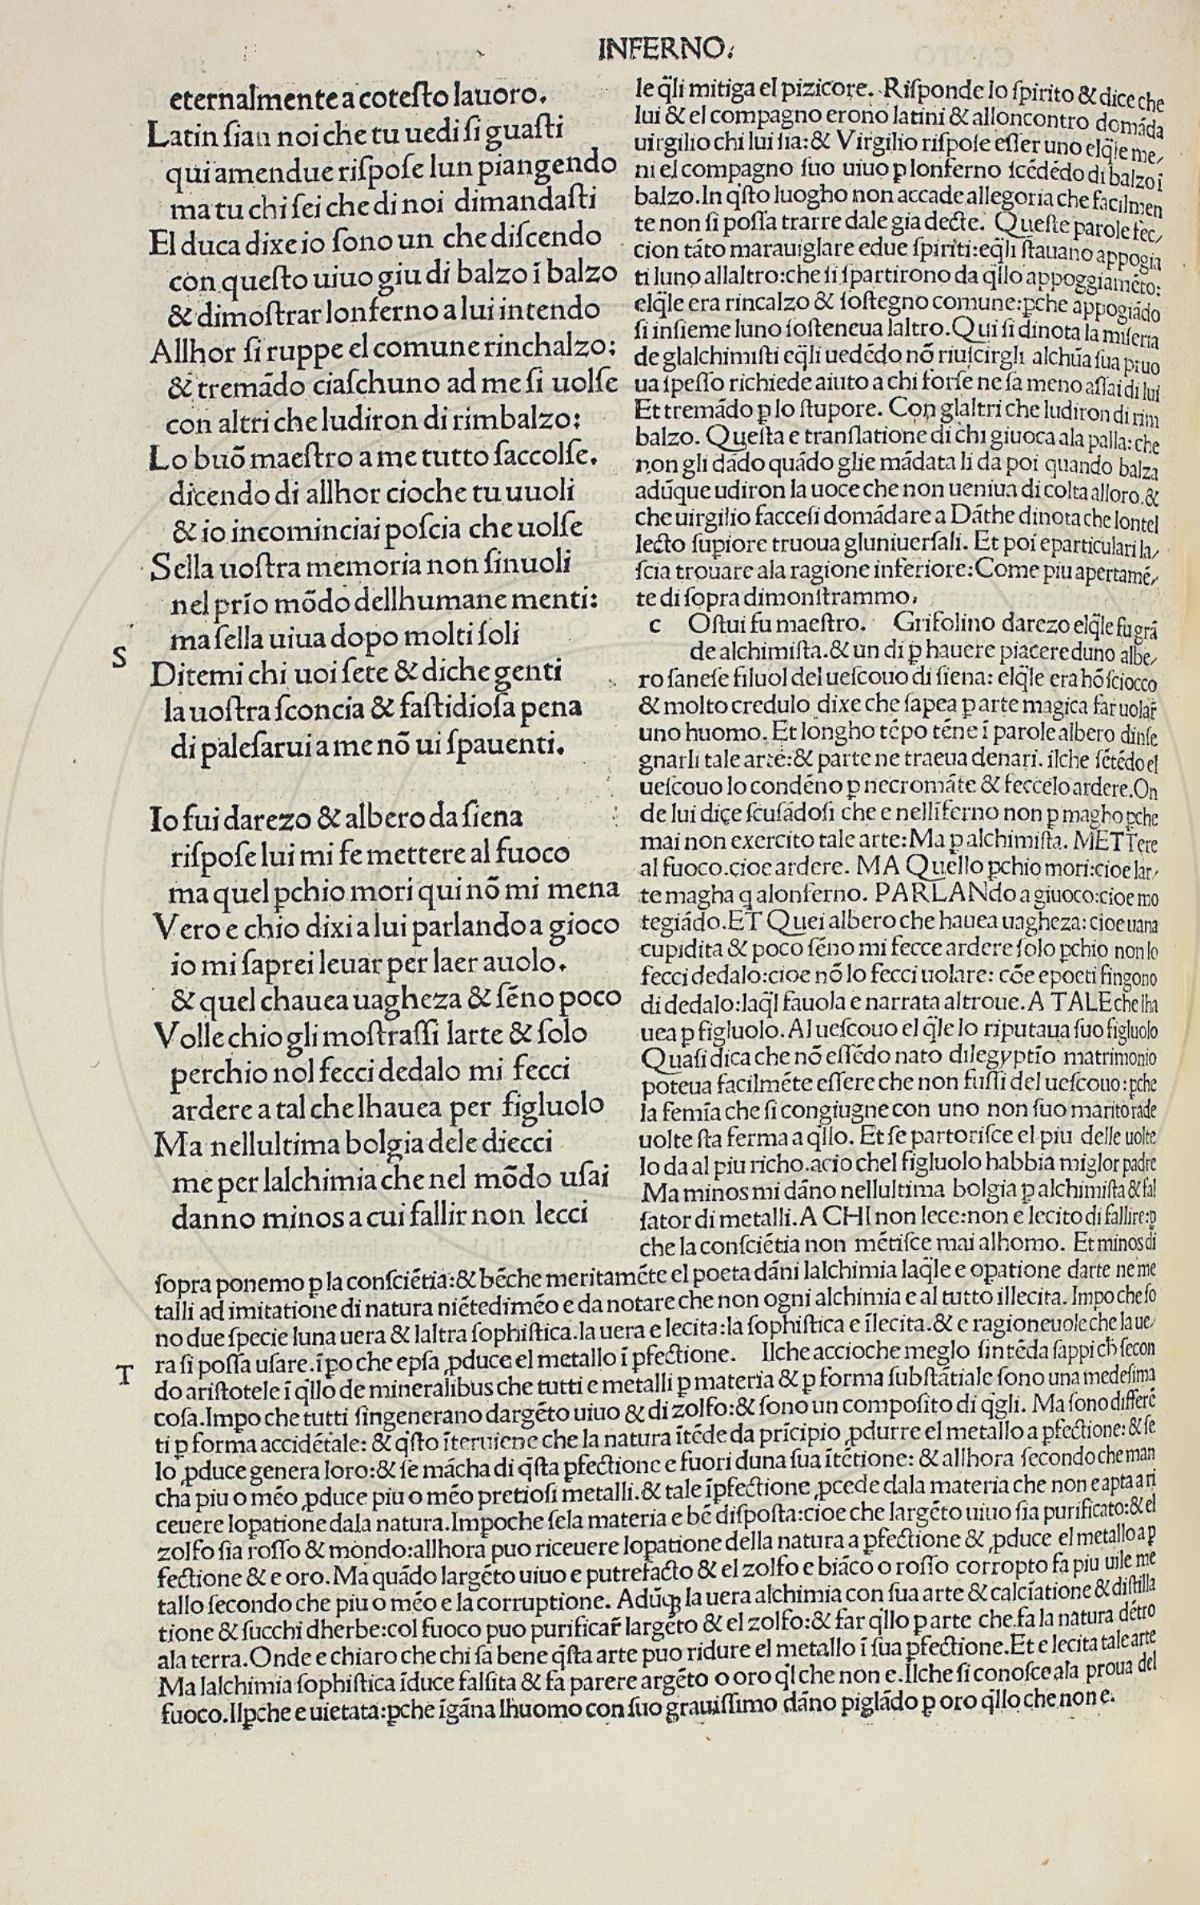 INFERNO.
eternalmente a cotesto lauoro.
Latin sian noi che tu uedi si guasti
qui amendue rispose lun piangendo
ma tu chi sei che di noi dimandasti
El duca dixe io sono un che discendo
con questo uiuo giu di balzo ĩ balzo
& dimostrar lonferno a lui intendo
Allhor si ruppe el comune rinchalzo:
& tremãdo ciaschuno ad me si uolse
con altri che ludiron di rimbalzo:
Lo buõ maestro a me tutto saccolse.
dicendo di allhor cioche tu uuoli
& io incominciai poscia che uolse
Sella uostra memoria non sinuoli
nel prĩo mõdo dellhumane menti:
ma sella uiua dopo molti soli
S
Ditemi chi uoi sete & di che genti
la uostra sconcia & fastidiosa pena
di palesarui a me nõ ui spauenti.
Io fui darezo & albero da siena
rispose lui mi fe mettere al fuoco
ma quel ꝑchio mori qui nõ mi mena
Vero e chio dixi a lui parlando a gioco
io mi saprei leuar per laer auolo.
& quel chauea uagheza & sẽno poco
Volle chio gli mostrassi larte & solo
perchio nol fecci dedalo mi fecci
ardere a tal che lhauea per figluolo
Ma nellultima bolgia dele diecci
me per lalchimia che nel mõdo usai
danno minos a cui fallir non lecci
le q̃li mitiga el pizicore. Risponde lo spirito & dice che
lui & el compagno erono latini & alloncontro domãda
uirgilio chi lui sia: & Virgilio rispose esser uno elq̃le me/
ni el compagno suo uiuo ꝑ lonferno scẽdẽdo di balzo ĩ
balzo. In q̃sto luogho non accade allegoria che facilmen
te non si possa trarre dale gia decte. Queste parole fec/
cion tãto marauiglare edue spiriti: eq̃li stauano appogia
ti luno allaltro: che si spartirono da q̃llo appoggiamẽto:
elq̃le era rincalzo & sostegno comune: ꝑche appogiãdo
si insieme luno sosteneua laltro. Qui si dinota la miseria
de glalchimisti eq̃li uedẽdo nõ riuscirgli alchũa sua pruo
ua spesso richiede aiuto a chi forse ne sa meno assai di lui
Et tremãdo ꝑ lo stupore. Con glaltri che ludiron di rim
balzo. Questa e translatione di chi giuoca ala palla: che
non gli dãdo quãdo glie mãdata li da poi quando balza
adũque udiron la uoce che non ueniua di colta alloro. &
che uirgilio faccesi domãdare a Dãthe dinota che lontel
lecto supiore truoua gluniuersali. Et poi eparticulari la/
scia trouare ala ragione inferiore: Come piu apertamẽ/
te di sopra dimonstrammo.
c Ostui fu maestro. Grifolino darezo elq̃le fu grã
de alchimista. & un di ꝑ hauere piacere duno albe/
ro sanese filuol del uescouo di siena: elq̃le era hõ sciocco
& molto credulo dixe che sapea ꝑ arte magica far uolar̃
uno huomo. Et longho tẽpo tẽne ĩ parole albero dinse
gnarli tale arte: & parte ne traeua denari. ilche sẽtẽdo el
uescouo lo condẽno ꝑ necromãte & feccelo ardere. On
de lui dice scusãdosi che e nellĩferno non ꝑ magho ꝑche
mai non exercito tale arte: Ma ꝑ alchimista. METTere
al fuoco. cioe ardere. MA Quello ꝑchio mori: cioe lar/
te magha q alonferno. PARLANdo a giuoco: cioe mo
tegiãdo. ET Quei albero che hauea uagheza: cioe uana
cupidita & poco sẽno mi fecce ardere solo ꝑchio non lo
fecci dedalo: cioe nõ lo fecci uolare: cõe e poeti fingono
di dedalo: laq̃l fauola e narrata altroue. A TALE che lha
uea ꝑ figluolo. Al uescouo el q̃le lo riputaua suo figluolo
Quasi dica che nõ essẽdo nato dilegyptĩo matrimonio
poteua facilmẽte essere che non fussi del uescouo: ꝑche
la femĩa che si congiugne con uno non suo marito rade
uolte sta ferma a q̃llo. Et se partorisce el piu delle uolte
lo da al piu richo. acio chel figluolo habbia miglor padre
Ma minos mi dãno nellultima bolgia ꝑ alchimista & fal
sator di metalli. A CHI non lece: non e lecito di fallire: ꝑ
che la consciẽtia non mẽtisce mai alhomo. Et minos di
sopra ponemo ꝑ la consciẽtia: & bẽche meritamẽte el poeta dãni lalchimia laq̃le e opatione darte ne me
talli ad imitatione di natura niẽtedimẽo e da notare che non ogni alchimia e al tutto illecita. Impo che so
no due specie luna uera & laltra sophistica. la uera e lecita: la sophistica e ĩlecita. & e ragioneuole che la ue/
ra si possa usare. ĩpo che epsa ꝓduce el metallo ĩ ꝑfectione. Ilche accioche meglo sintẽda sappi ch̃ secon
T
do aristotele ĩ q̃llo de mineralibus che tutti e metalli ꝑ materia & ꝑ forma substãtiale sono una medesima
cosa. Impo che tutti singenerano dargẽto uiuo & di zolfo: & sono un composito di q̃gli. Ma sono differẽ
ti ꝑ forma accidẽtale: & q̃sto ĩteruiene che la natura ĩtẽde da prĩcipio ꝓdurre el metallo a ꝑfectione: & se
lo ꝓduce genera loro: & se mãcha di q̃sta ꝑfectione e fuori duna sua ĩtẽtione: & allhora secondo che man
cha piu o mẽo ꝓduce piu o mẽo pretiosi metalli. & tale ĩꝑfectione ꝓcede dala materia che non e apta a ri
ceuere lopatione dala natura. Impoche se la materia e bẽ disposta: cioe che largẽto uiuo sia purificato: & el
zolfo sia rosso & mondo: allhora puo riceuere lopatione della natura a ꝑfectione & ꝓduce el metallo a ꝑ
fectione & e oro. Ma quãdo largẽto uiuo e putrefacto & el zolfo e biãco o rosso corropto fa piu uile me
tallo secondo che piu o mẽo e la corruptione. Adũq̃ la uera alchimia con sua arte & calcĩatione & distilla
tione & succhi dherbe: col fuoco puo purificar̃ largẽto & el zolfo: & far q̃llo ꝑ arte che fa la natura dẽtro
ala terra. Onde e chiaro che chi sa bene q̃sta arte puo ridure el metallo ĩ sua ꝑfectione. Et e lecita tale arte
Ma lalchimia sophistica ĩduce falsita & fa parere argẽto o oro q̃l che non e. Ilche si conosce ala proua del
fuoco. Ilꝑche e uietata: ꝑche ĩgãna lhuomo con suo grauissimo dãno piglãdo ꝑ oro q̃llo che non e.